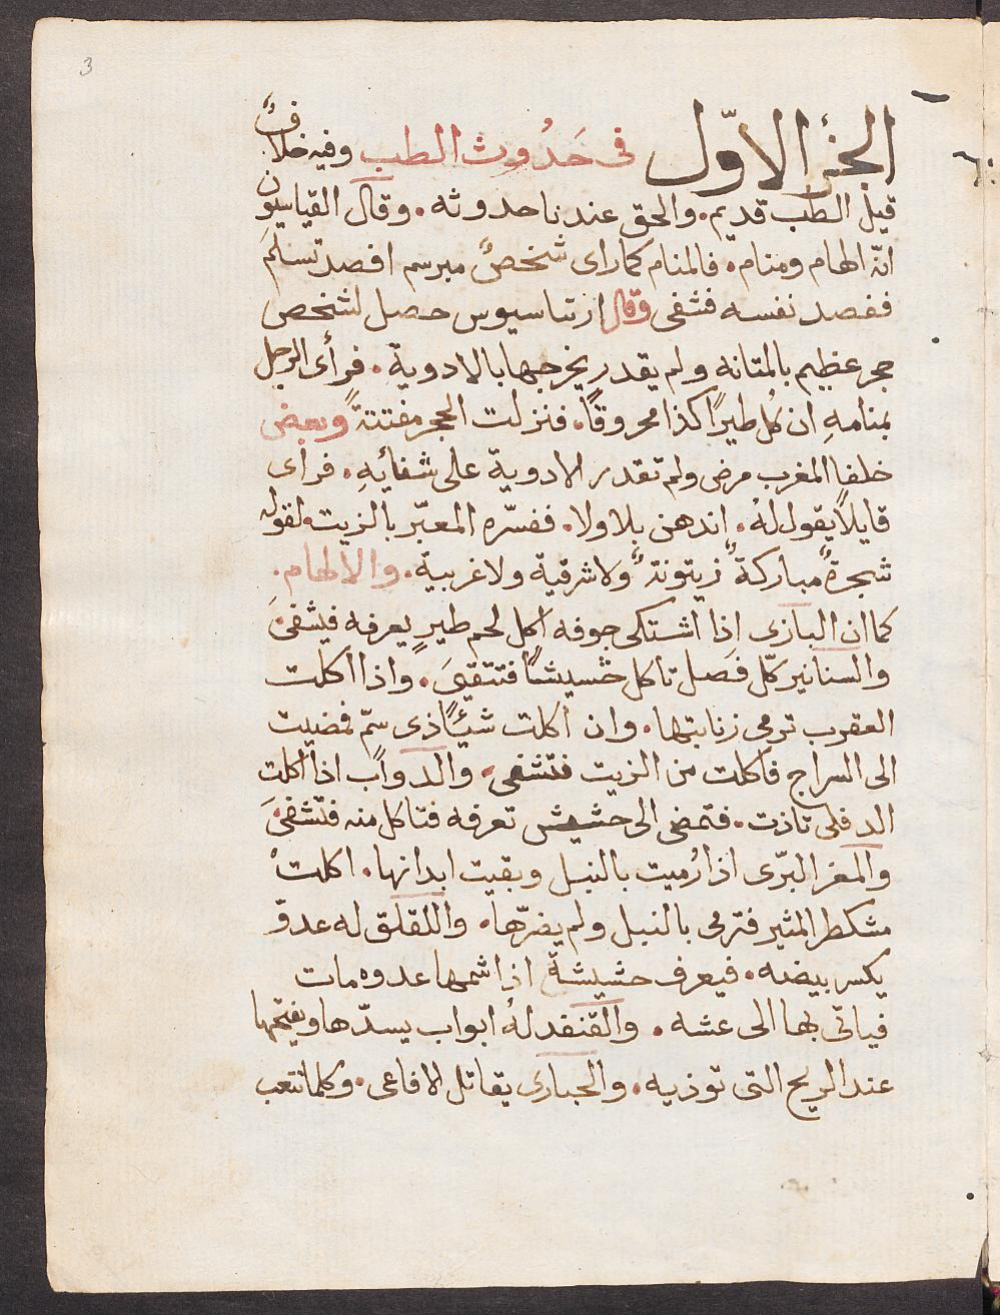 3
الجزء الاوّل فى حَدُوث الطب وفيه خلافٌ
قيل الطب قديم. والحق عندنا حدوثه. وقال القياسيون
انّه الهام ومنام. فالمنام كما راى شخصٌ مبرسم افصد تسلم
ففصد نفسه فشفى وقال ارتباسيوس حصل لشخص
حجر عظيم بالمتانه ولم يقدر يخرجها بالادوية. فرأى الرجل
بمنامهِ ان كُل طيرًا كذا محروقًا. فنزلت الحجر مفتتةً وبعض
خلفا المغرب مرض ولم تقدر الادوية على شفائِهِ. فراى
قايلاً يقول لهُ. اندهن بلا ولا. ففسّره المعبّر بالزيت. لقوله
شجرةٌ مباركةٌ زيتونةٌ ولا شرقية ولا غربية. والالهام.
كما ان البازى اذا اشتكى جوفه اكل لحم طيرٍ يعرفه فيشفىَ
والسنانير كلّ فصل تاكل حشيشًا فتتقيىَ. واذا اكلت
العقرب ترمى زنابتها. وان اكلت شيئًا ذى سمّ فمضيت
الى السراج فاكلت من الزيت فتشفى. والدواب اذا اكلت
الدفلى تاذت. فتمضى الى حشيش تعرفه فتاكل منه فتشفىَ.
والمغز البرّى اذا رُميت بالنبل وبقيت ابدانها. اكلتْ
مشكطرا لمثير فترمى بالنبل ولم يضرّها. واللقلق له عدوّ
يكسر بيضه. فيعرف حشيشة اذا شمها عدوه مات
فياتى بها الى عشه. والقنفد لهُ ابواب يسدّها ويفتحها
عند الريح التى توذيه. والحبارى يقاتل الافاعى. وكلما تتعب